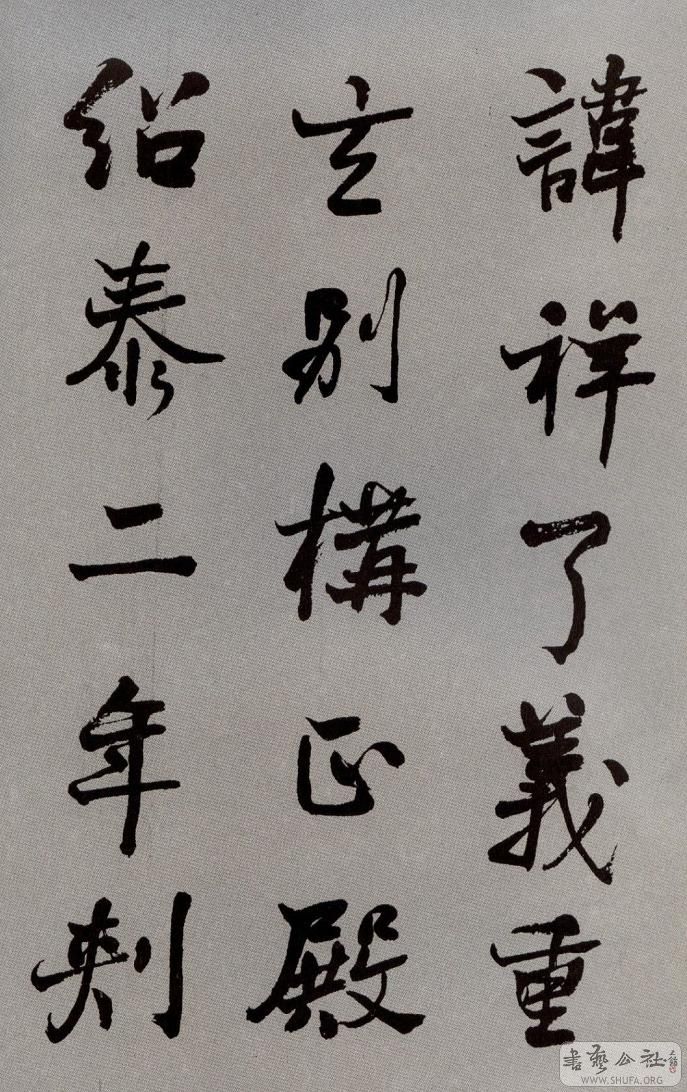 諱祥了義重
玄別構正殿
紹泰二年刺
書藝公社
WWW.SHUFA.ORG